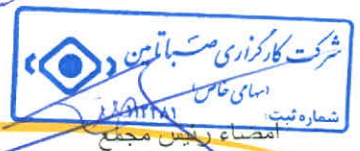 شرکت کارگزاری صبا تامین
(سهامی خاص)
شماره ثبت:
امضاء رئیس مجمع